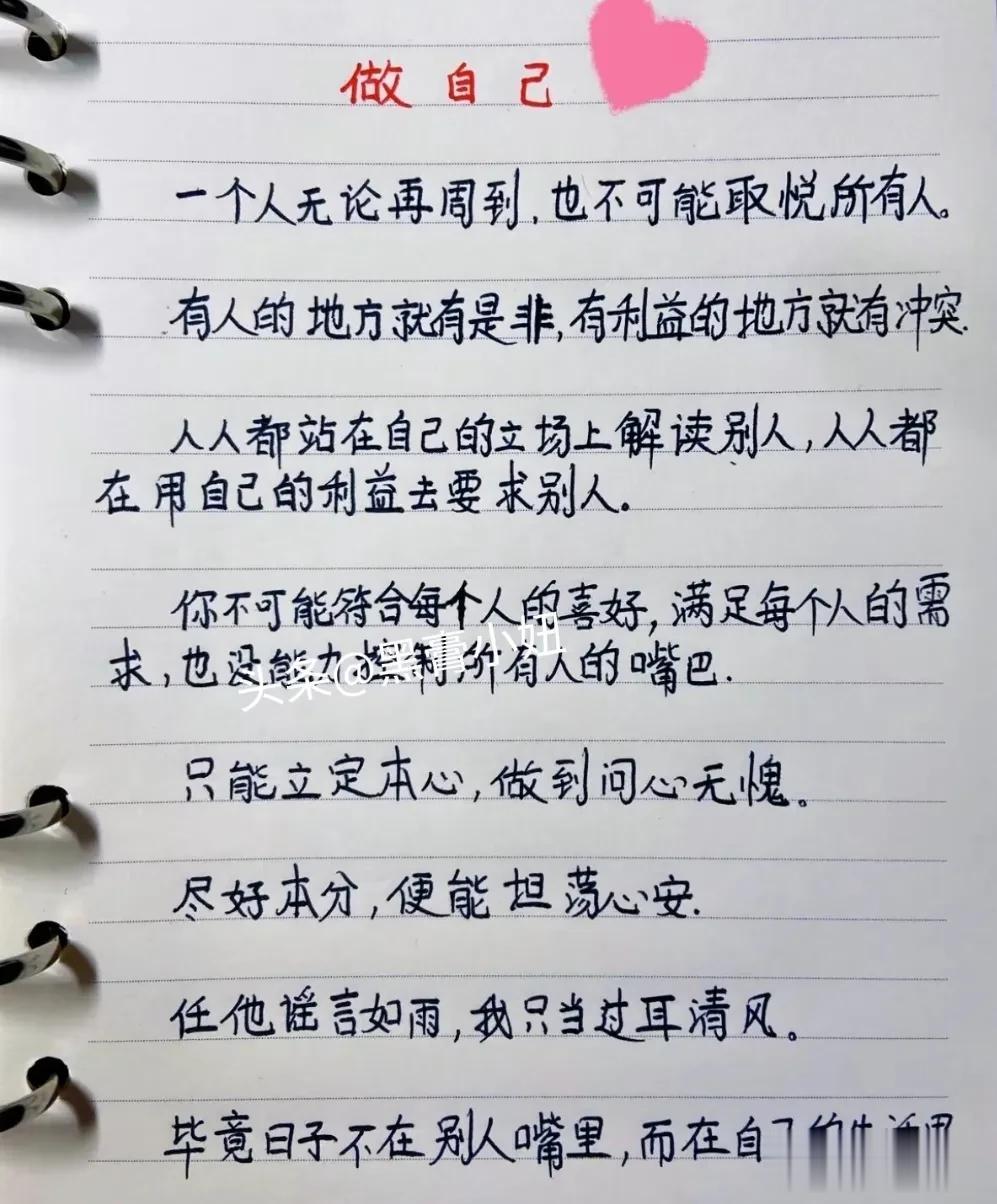 做自己
一个人无论再周到,也不可能取悦所有人。
有人的地方就有是非,有利益的地方就有冲突.
人人都站在自己的立场上解读别人,人人都
在用自己的利益去要求别人。
你不可能符合每个人的喜好,满足每个人的需
求,也没能力控制所有人的嘴巴.
头条@黑膏小妞
只能立定本心,做到问心无愧。
尽好本分,便能坦荡心安.
任他谣言如雨,我只当过耳清风。
毕竟日子不在别人嘴里,而在自